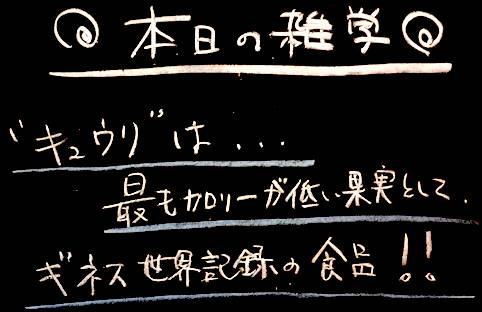 本日の雑学
"キュウリ"は...
最もカロリーが低い果実として.
ギネス世界記録の食品!!